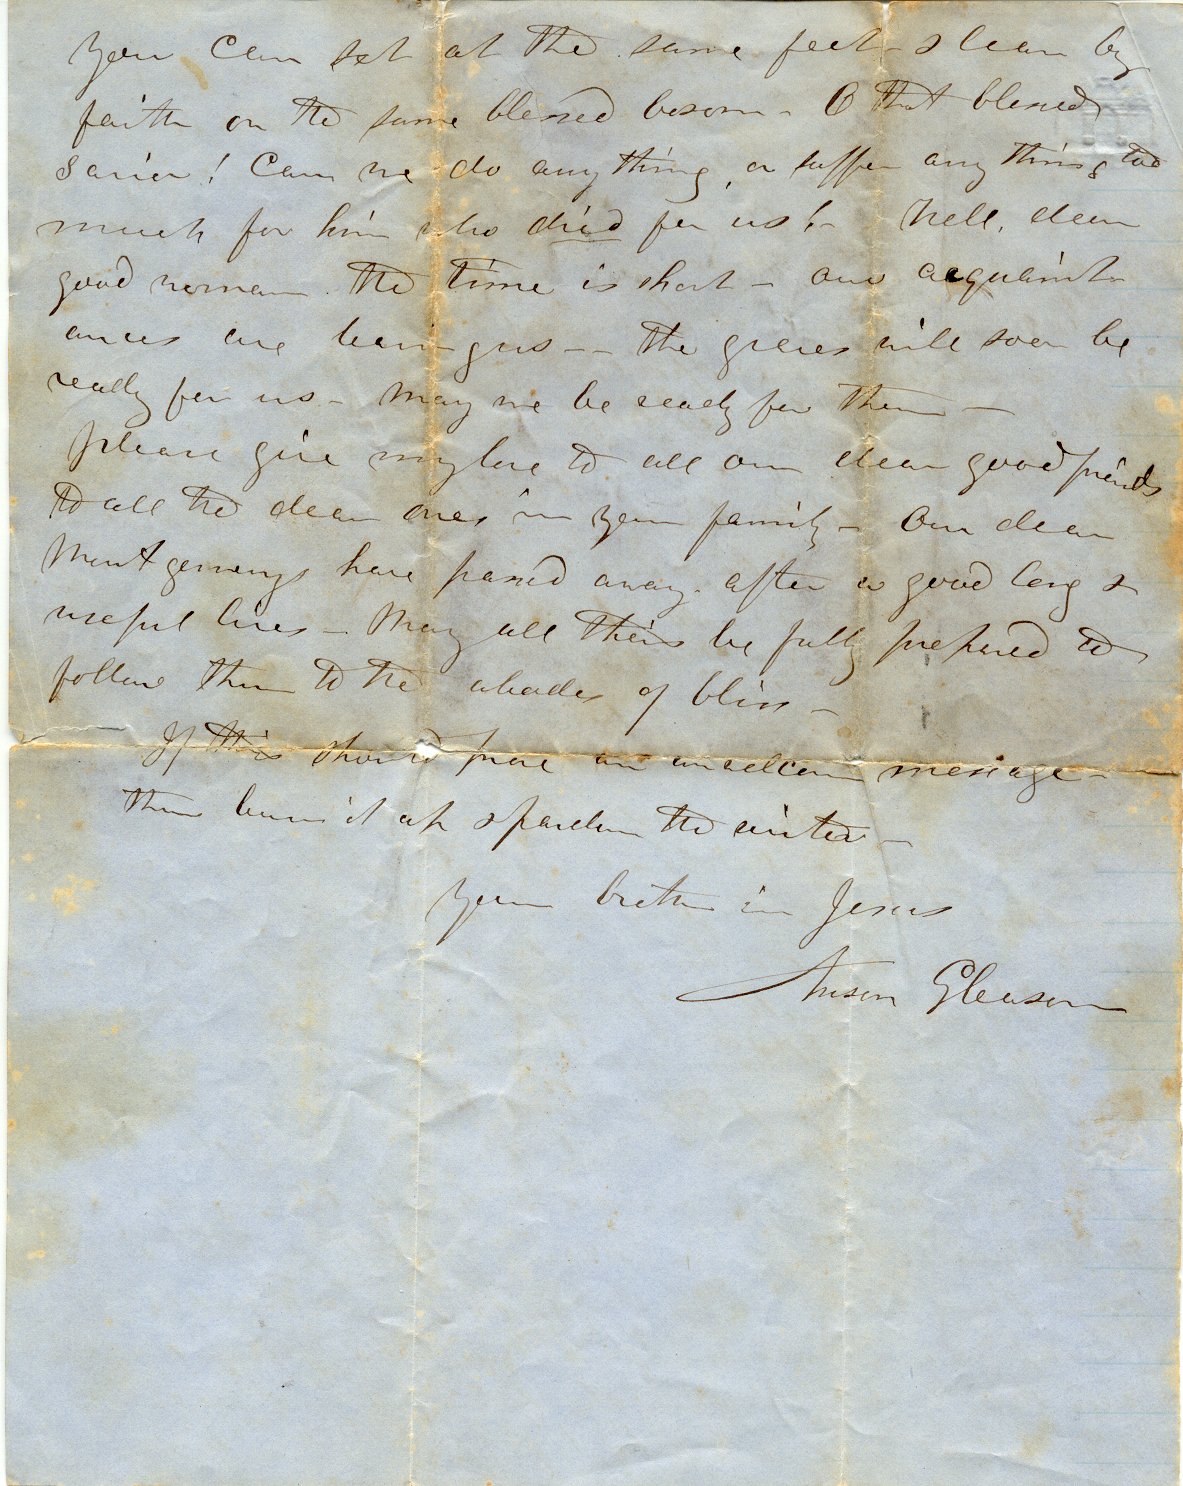 You can set at the same feet & lean by
faith on the same blessed bosom - O that blessed
Savior! Can we do any thing, or suffer any thing too
much for him who died for us! - Well, dear
good woman. The time is short - our acquaint
ances are leaving us - - the graves will soon be
ready for us - May we be ready for them -
Please give my love to all our dear good friends
to all the dear ones in your family - Our dear
Montgomerys have passed away. after a good long &
useful lives - May all theirs be fully prepared to
follow them to the abodes of bliss -
If this should prove an unwelcome message -
then burn it up & pardon the writer -
Your brother in Jesus
Anson Gleason